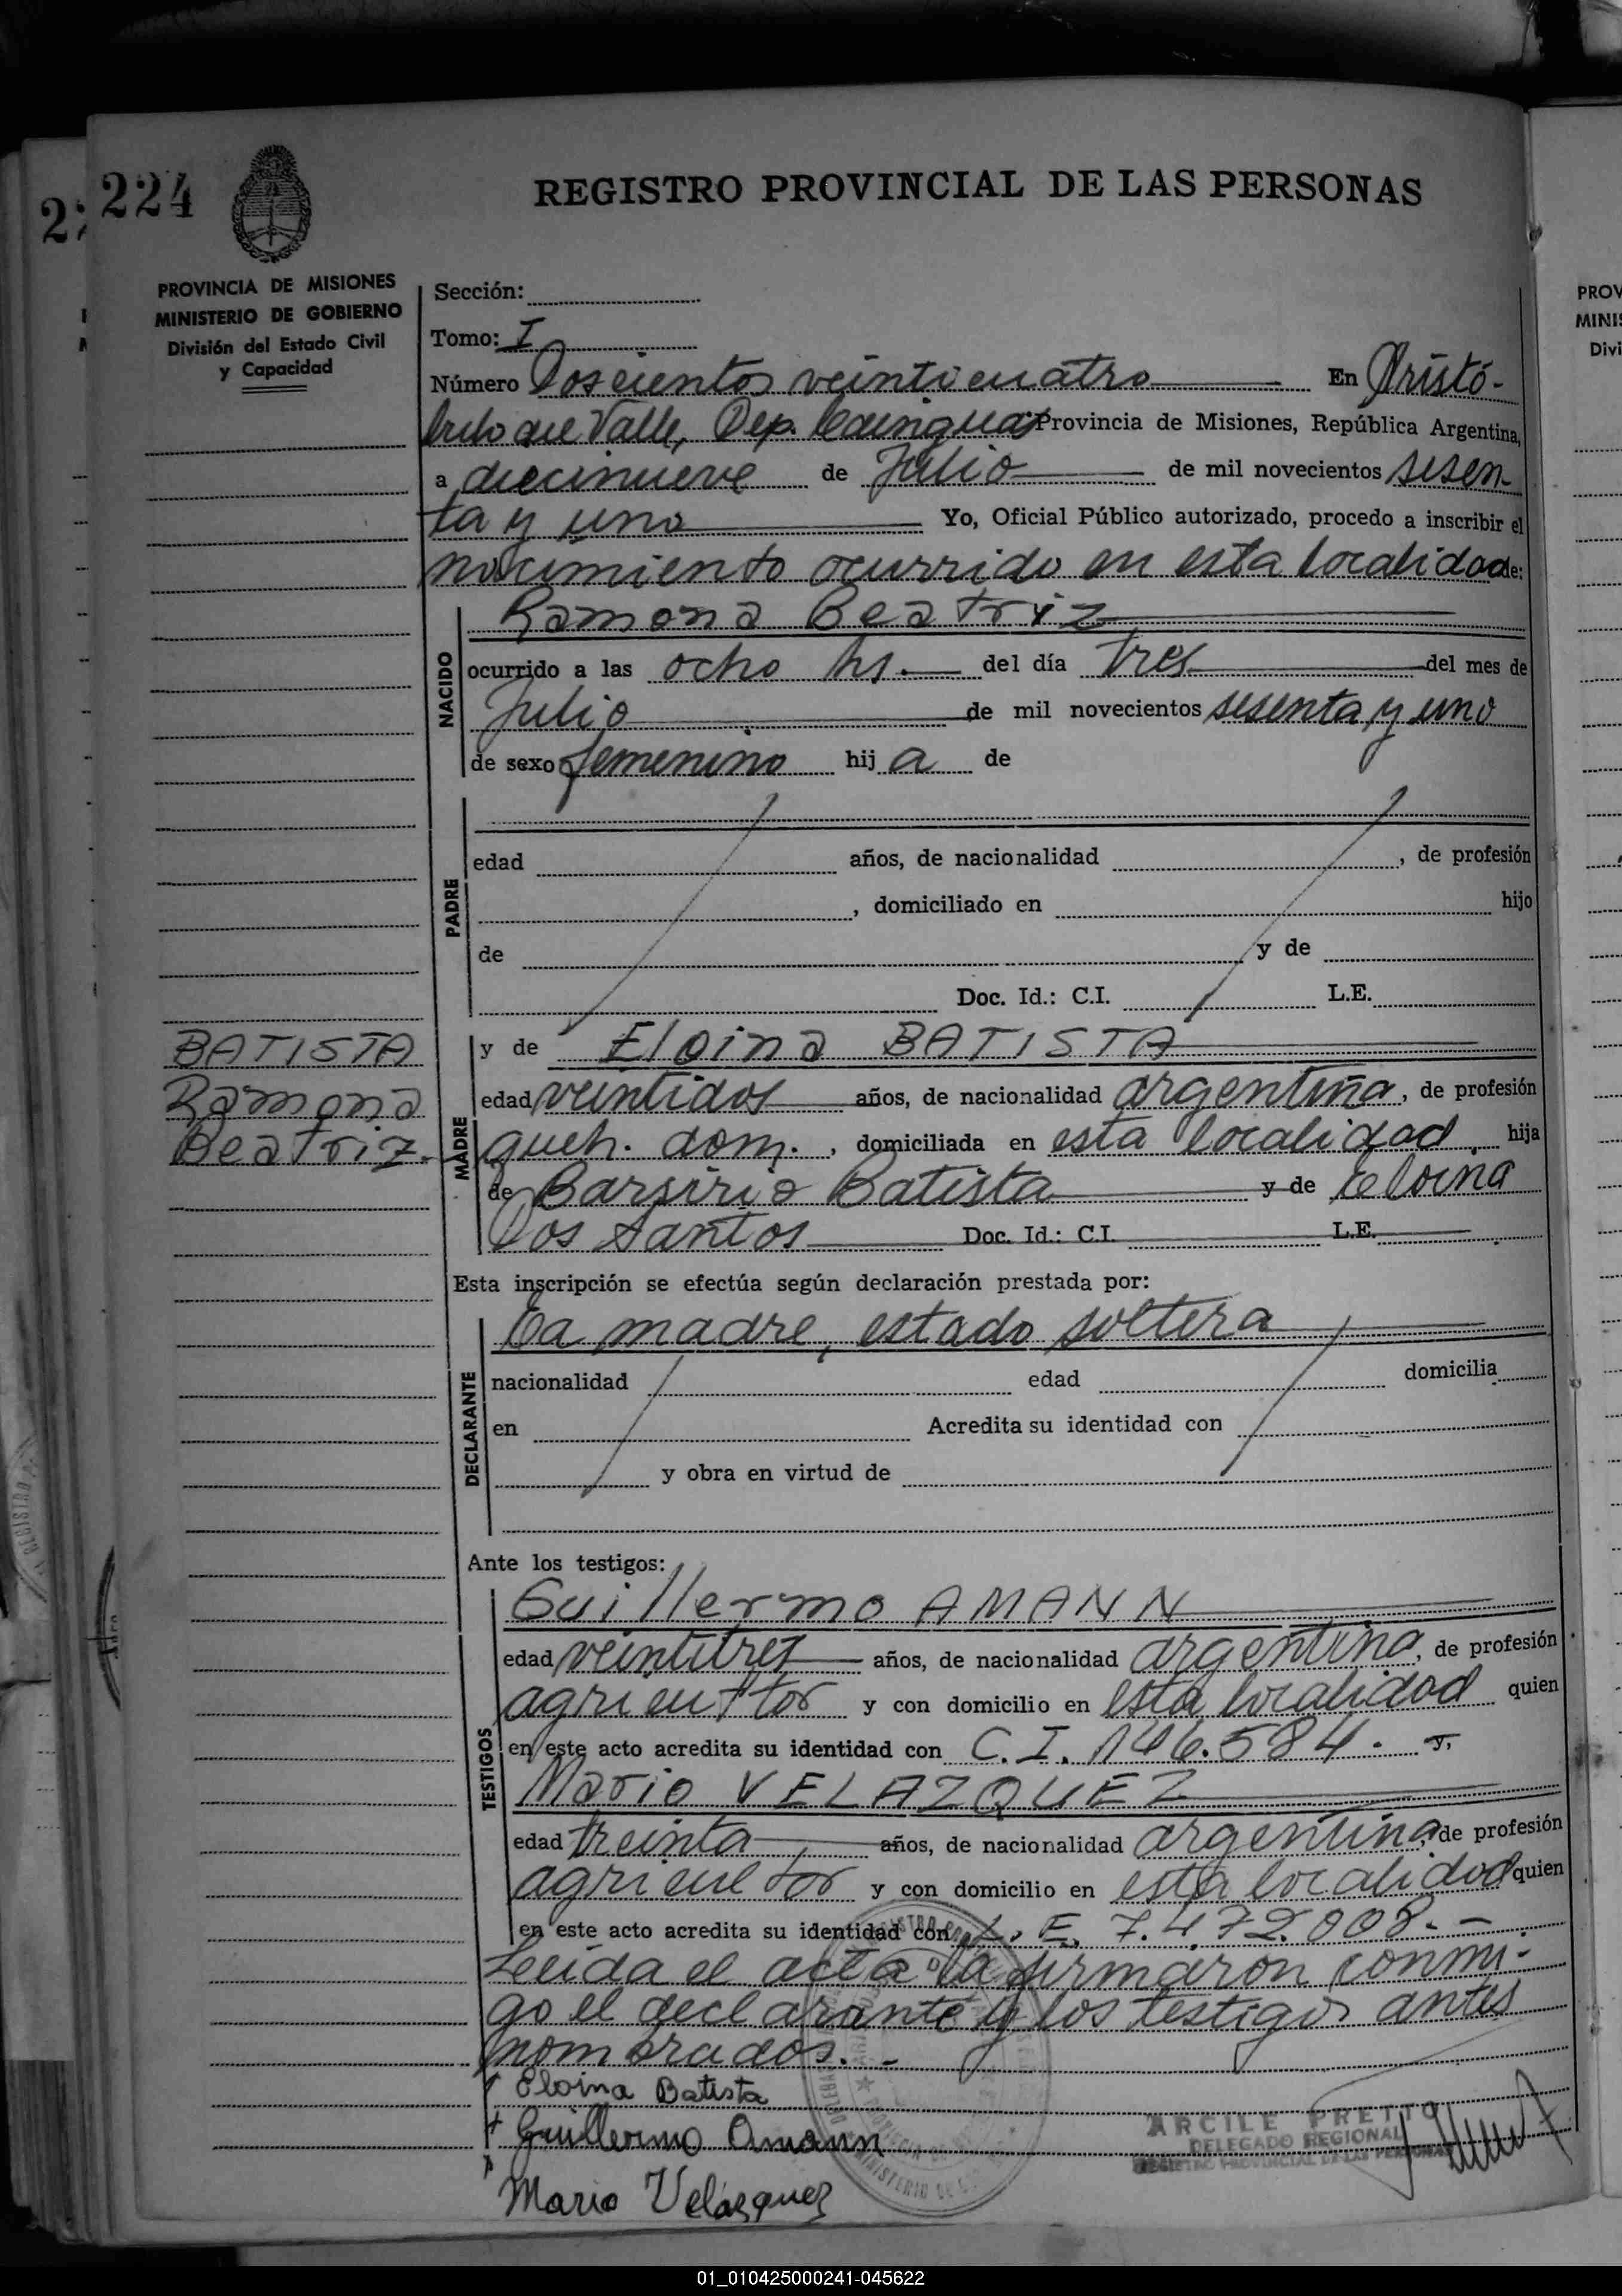 224
REGISTRO PROVINCIAL DE LAS PERSONAS
PROVINCIA DE MISIONES
MINISTERIO DE GOBIERNO
División del Estado Civil
y Capacidad
Sección:
Tomo: I
Número Doscientos veinticuatro En Aristó-
bulo del Valle, Dep. Cainguas Provincia de Misiones, República Argentina,
a diecinueve de Julio de mil novecientos sesen-
ta y uno Yo, Oficial Público autorizado, procedo a inscribir el
nacimiento ocurrido en esta localidad de:
NACIDO
Ramona Beatriz
ocurrido a las ocho hs. del día tres del mes de
Julio de mil novecientos sesenta y uno
de sexo femenino hij a de
PADRE
edad años, de nacionalidad , de profesión
, domiciliado en hijo
de y de
Doc. Id.: C.I. L.E.
BATISTA
Ramona
Beatriz.
MADRE
y de Eloina BATISTA
edad veintidos años, de nacionalidad argentina, de profesión
queh. dom. , domiciliada en esta localidad hija
de Batista y de Eloina
Dos Santos Doc. Id.: C.I. L.E.
Esta inscripción se efectúa según declaración prestada por:
DECLARANTE
La madre, estado soltera
nacionalidad edad domicilia
en Acredita su identidad con
y obra en virtud de
Ante los testigos:
TESTIGOS
Guillermo AMANN
edad veintitres años, de nacionalidad argentina, de profesión
agricultor y con domicilio en esta localidad quien
en este acto acredita su identidad con C. I. 146.584. y,
Mario VELAZQUEZ
edad treinta años, de nacionalidad argentina, de profesión
agricultor y con domicilio en esta localidad quien
en este acto acredita su identidad con L. E. 7.472.008.-
Leida el acta la firmaron conmi-
go el declarante y los testigos antes
nombrados.-
Eloina Batista
Guillermo Amann
Mario Velásquez
ARCILE PRETTO
DELEGADO REGIONAL
REGISTRO PROVINCIAL DE LAS PERSONAS
01_010425000241-045622